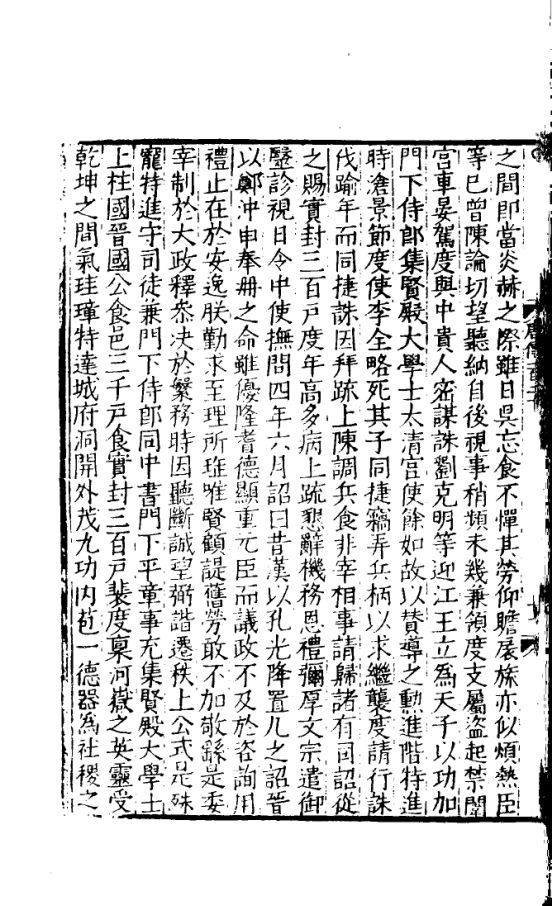 之間即當炎赫之際雖日昃忘食不憚其勞仰瞻扆旒亦似煩熱臣
等巳曾陳論切望聽納自後視事稍頻未幾兼領度支屬盜起禁闈
宮車晏駕度與中貴人密謀誅劉克明等迎江王立為天子以功加
門下侍郎集賢殿大學士太清宮使餘如故以贊導之勳進階特進
時滄景節度使李全略死其子同捷竊弄兵柄以求繼襲度請行誅
伐踰年而同捷誅因拜疏上陳調兵食非宰相事請歸諸有司詔從
之賜實封三百戸度年高多病上疏懇辭機務恩禮彌厚文宗遣御
毉診視日令中使撫問四年六月詔曰昔漢以孔光降置几之詔晉
以鄭沖申奉册之命雖優隆耆德顯重元臣而議政不及於咨詢用
禮止在於安逸朕勤求至理所珤唯賢顧諟舊勞敢不加敬繇是委
宰制於大政釋叅決於繁務時因聽斷誠望弼諧遷秩上公式是殊
寵特進守司徒兼門下侍郎同中書門下平章事充集賢殿大學士
上柱國晉國公食邑三千戸食實封三百戸裴度稟河嶽之英靈受
乾坤之間氣珪璋特達城府洞開外茂九功內苞一德器為社稷之